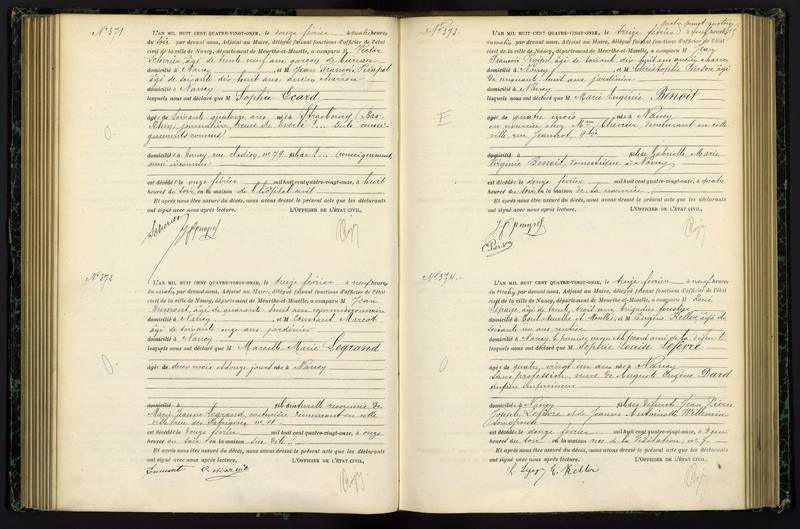 N° 371
L'AN MIL HUIT CENT QUATRE-VINGT-ONZE, le douze février à quatre heures
du soir par devant nous, Adjoint au Maire, délégué faisant fonctions d'officier de l'état
civil de la ville de Nancy, département de Meurthe-et-Moselle, a comparu M Victor
Scherier, âgé de trente neuf ans garçon de bureau
domicilié à Nancy, et M Jean François Pimpel
âgé de soixante dix huit ans ancien charron
domicilié à Nancy
lesquels nous ont déclaré que M Sophie Ecard
âgée de soixante quatorze ans, née à Strasbourg (Bas-
Rhin) journalière, veuve de
domicilié à Nancy, rue Clodion n° 79
est décédée le onze février mil huit cent quatre-vingt-onze, à huit
heures du soir en la maison de l'hôpital civil
Et après nous être assuré du décès, nous avons dressé le présent acte que les déclarants
ont signé avec nous après lecture. L'OFFICIER DE L'ÉTAT CIVIL,
N° 372
L'AN MIL HUIT CENT QUATRE-VINGT-ONZE, le treize février à neuf heures
du matin, par devant nous, Adjoint au Maire, délégué faisant fonctions d'officier de l'état
civil de la ville de Nancy, département de Meurthe-et-Moselle, a comparu M Jean
âgé de quarante huit ans commissionnaire
domicilié à Nancy, et M Constant Marcot
âgé de soixante onze ans jardinier
domicilié à Nancy
lesquels nous ont déclaré que M Marcelle Marie Legrand
âgée de deux mois et douze jours née à Nancy
domicilié à fille naturelle reconnue de
Marie Jeanne Legrand, couturière demeurant en cette
ville rue des Fabriques n°
est décédée le douze février mil huit cent quatre-vingt-onze, à onze
heures du soir en la maison
Et après nous être assuré du décès, nous avons dressé le présent acte que les déclarants
ont signé avec nous après lecture. L'OFFICIER DE L'ÉTAT CIVIL,
N° 373
L'AN MIL HUIT CENT QUATRE-VINGT-ONZE, le treize février à neuf heures
du matin par devant nous, Adjoint au Maire, délégué faisant fonctions d'officier de l'état
civil de la ville de Nancy, département de Meurthe-et-Moselle, a comparu M Jean
François Pimpel âgé de soixante dix huit ans ancien charron
domicilié à Nancy, et M Christophe Pierson âgé
de cinquante huit ans, jardinier
domicilié à Nancy
lesquels nous ont déclaré que M Marie Eugénie Benoit
E
âgée de quatre mois née à Nancy
en nourrice chez Mme Cherrier, demeurant en cette
ville rue Jeannot, 9 bis
domicilié à fille de Gabrielle Marie
Virginie Benoit, domestique à Nancy
est décédée le douze février mil huit cent quatre-vingt-onze, à quatre
heures du soir en la maison de la nourrice
Et après nous être assuré du décès, nous avons dressé le présent acte que les déclarants
ont signé avec nous après lecture. L'OFFICIER DE L'ÉTAT CIVIL,
N° 374
L'AN MIL HUIT CENT QUATRE-VINGT-ONZE, le treize février à neuf heures
du matin, par devant nous, Adjoint au Maire, délégué faisant fonctions d'officier de l'état
civil de la ville de Nancy, département de Meurthe-et-Moselle, a comparu M Louis
Lepage âgé de trente trois ans brigadier forestier
domicilié à Pont, Meurthe et Moselle, et M Eugène Keller âgé de
soixante un ans rentier
domicilié à Nancy le premier neveu et le second ami de la défunte
lesquels nous ont déclaré que M Sophie Louise Lefèvre
âgée de quatre vingt un ans née à Nancy
sans profession, veuve de Auguste Eugène Dard
ancien imprimeur
domicilié à Nancy fille des défunts Jean Pierre
Joseph Lefèvre et de Jeanne Antoinette Willemin
son épouse
est décédée le douze février mil huit cent quatre-vingt-onze, à deux
heures du soir en la maison rue de la Visitation, n° 7
Et après nous être assuré du décès, nous avons dressé le présent acte que les déclarants
ont signé avec nous après lecture. L'OFFICIER DE L'ÉTAT CIVIL,
E. Keller